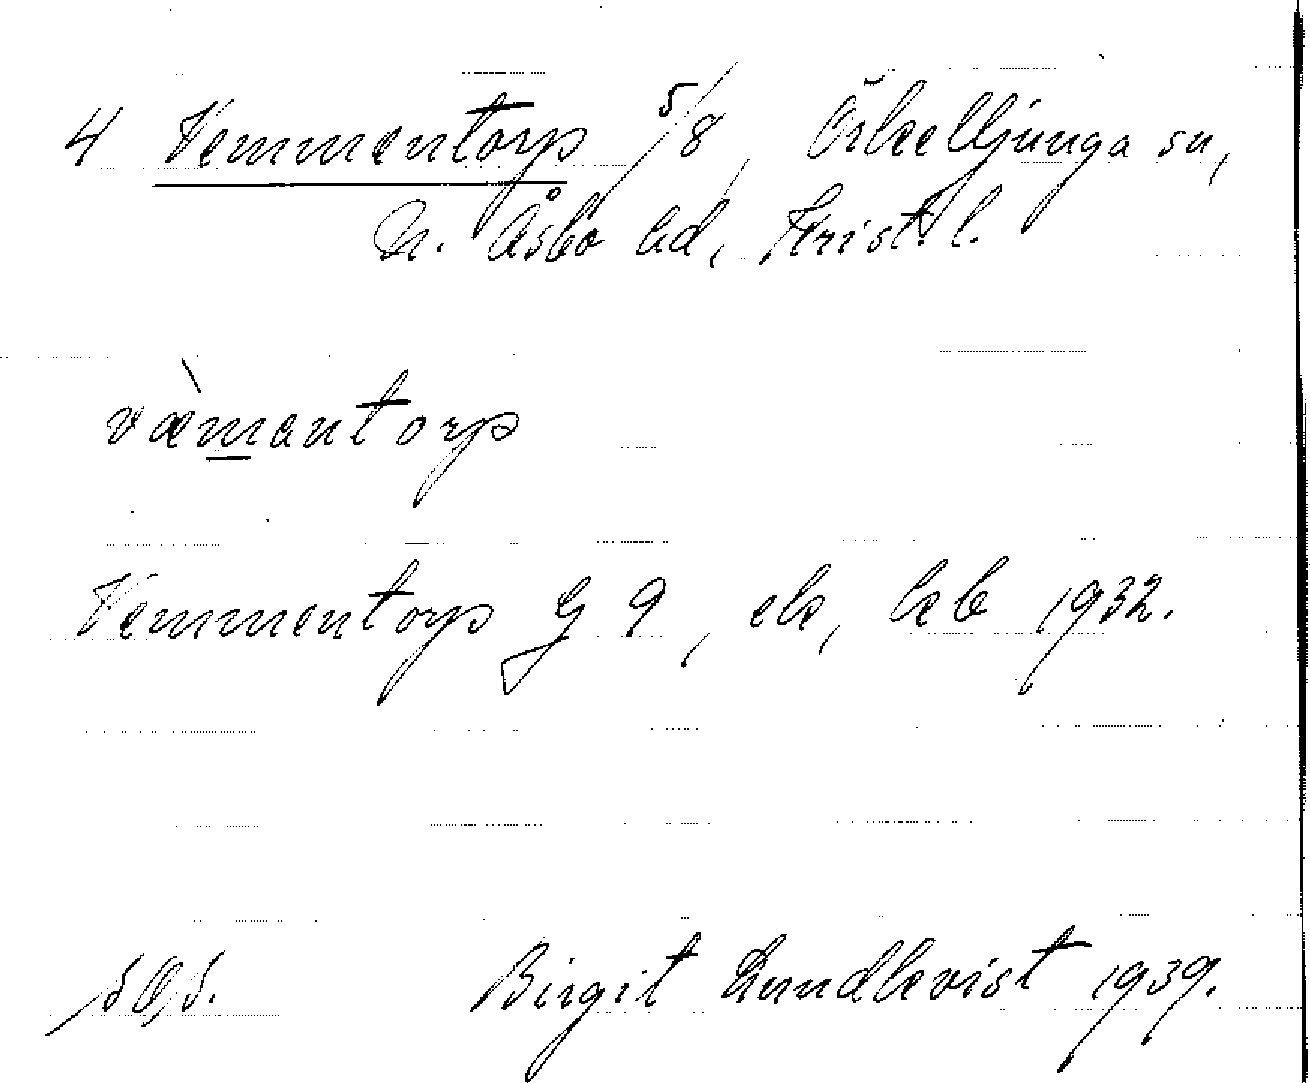 4 Vemmentorp 5/8, Örkelljunga sn,
N. Åsbo hd, Krist. l.
væ̀mantorp
Vemmentorp G 9, ek, kb 1932.
Birgit Lundkvist 1939.